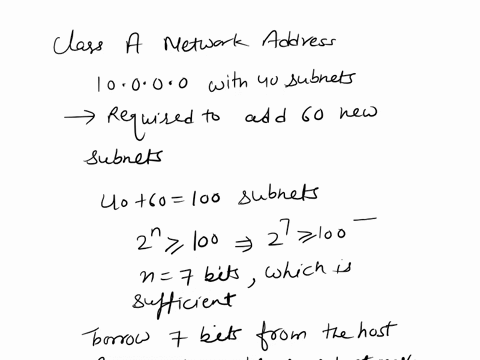 Class A Network Address
10.0.0.0 with 40 subnets
→ Required to add 60 new
subnets
40+60=100 subnets
2^n ≥ 100 ⇒ 2^7 ≥ 100
n = 7 bits, which is
sufficient
borrow 7 bits from the host